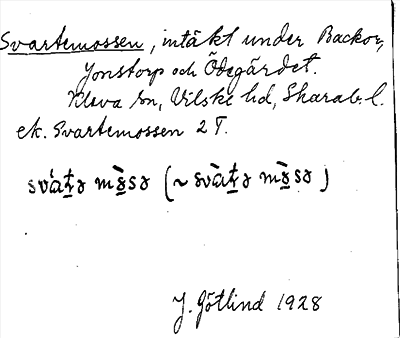 Svartemossen, intäkt under Backor,
Jonstorp och Ödegärdet.
Kleva sn, Vilske hd, Skarab. l.
ek. Svartemossen 2 T.
J. Götlind 1928